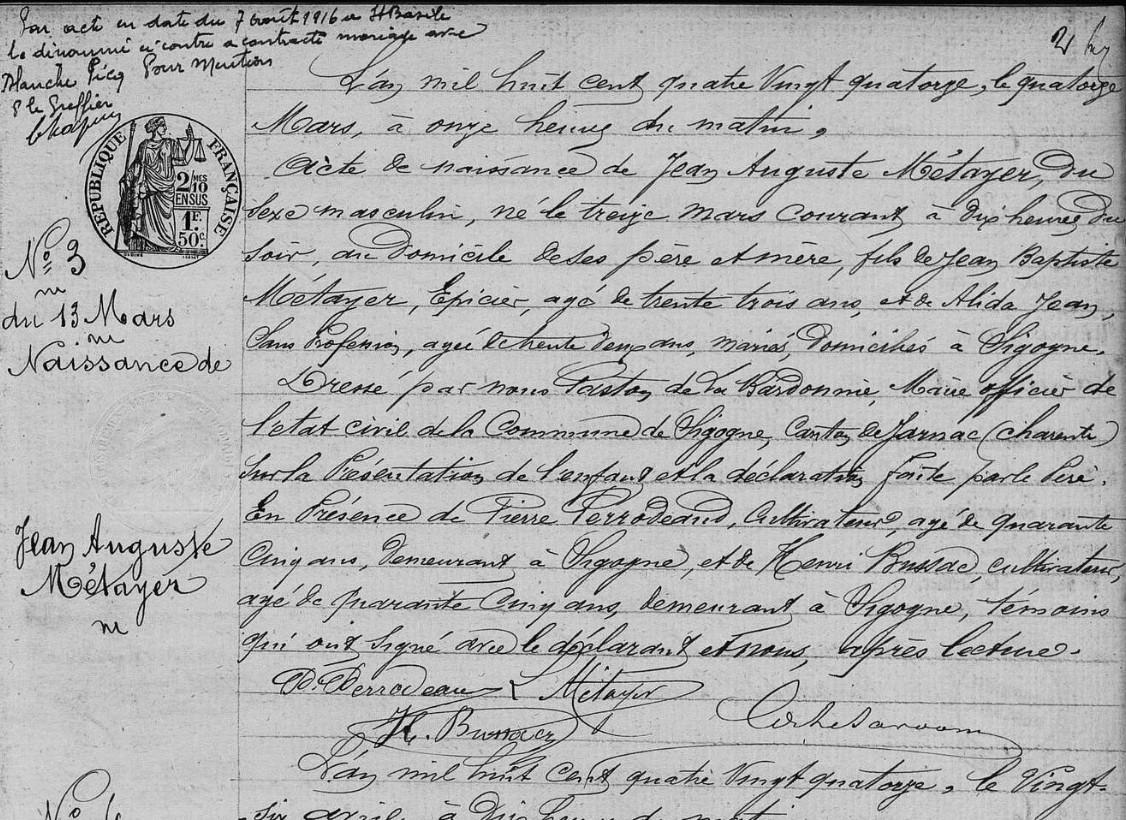 Par acte en date du 7 août 1916 a St Basile
le dénommé ci contre a contracté mariage avec
Blanche Picq Pour Mention
le Greffier
2
L'an mil huit cent quatre Vingt quatorze, le quatorze
Mars, à onze heures du matin,
Acte de naissance de Jean Auguste Métayer, du
Sexe masculin, né le treize mars courant à dix heures du
Soir, au Domicile de ses père et mère, fils de Jean Baptiste
Métayer, Epicier, agé de trente trois ans, et de Alida Jean,
Sans Profession, agée de trente deux ans, mariés, Domiciliés à Sigogne.
Dressé par nous Gaston de La Bardonnie, Maire officier de
l'etat civil de la Commune de Sigogne, Canton de Jarnac (charente)
Sur la Présentation de l'enfant et la déclaration faite par le Père.
En Présence de Pierre Perrodeaud, Cultivateur, agé de quarante
Cinq ans, demeurant à Sigogne, et de Henri Bussac, cultivateur,
agé de quarante Cinq ans, demeurant à Sigogne, témoins
qui ont signé avec le déclarant et nous, après lecture.
Perrodeau Métayer
H. Bussac
L'an mil huit cent quatre Vingt quatorze, le Vingt-
six avril, à Dix heures du mat
RÉPUBLIQUE FRANÇAISE
2/10MES
EN SUS
1F.
50c
No 3
du 13 Mars
Naissance de
Jean Auguste
Métayer
No